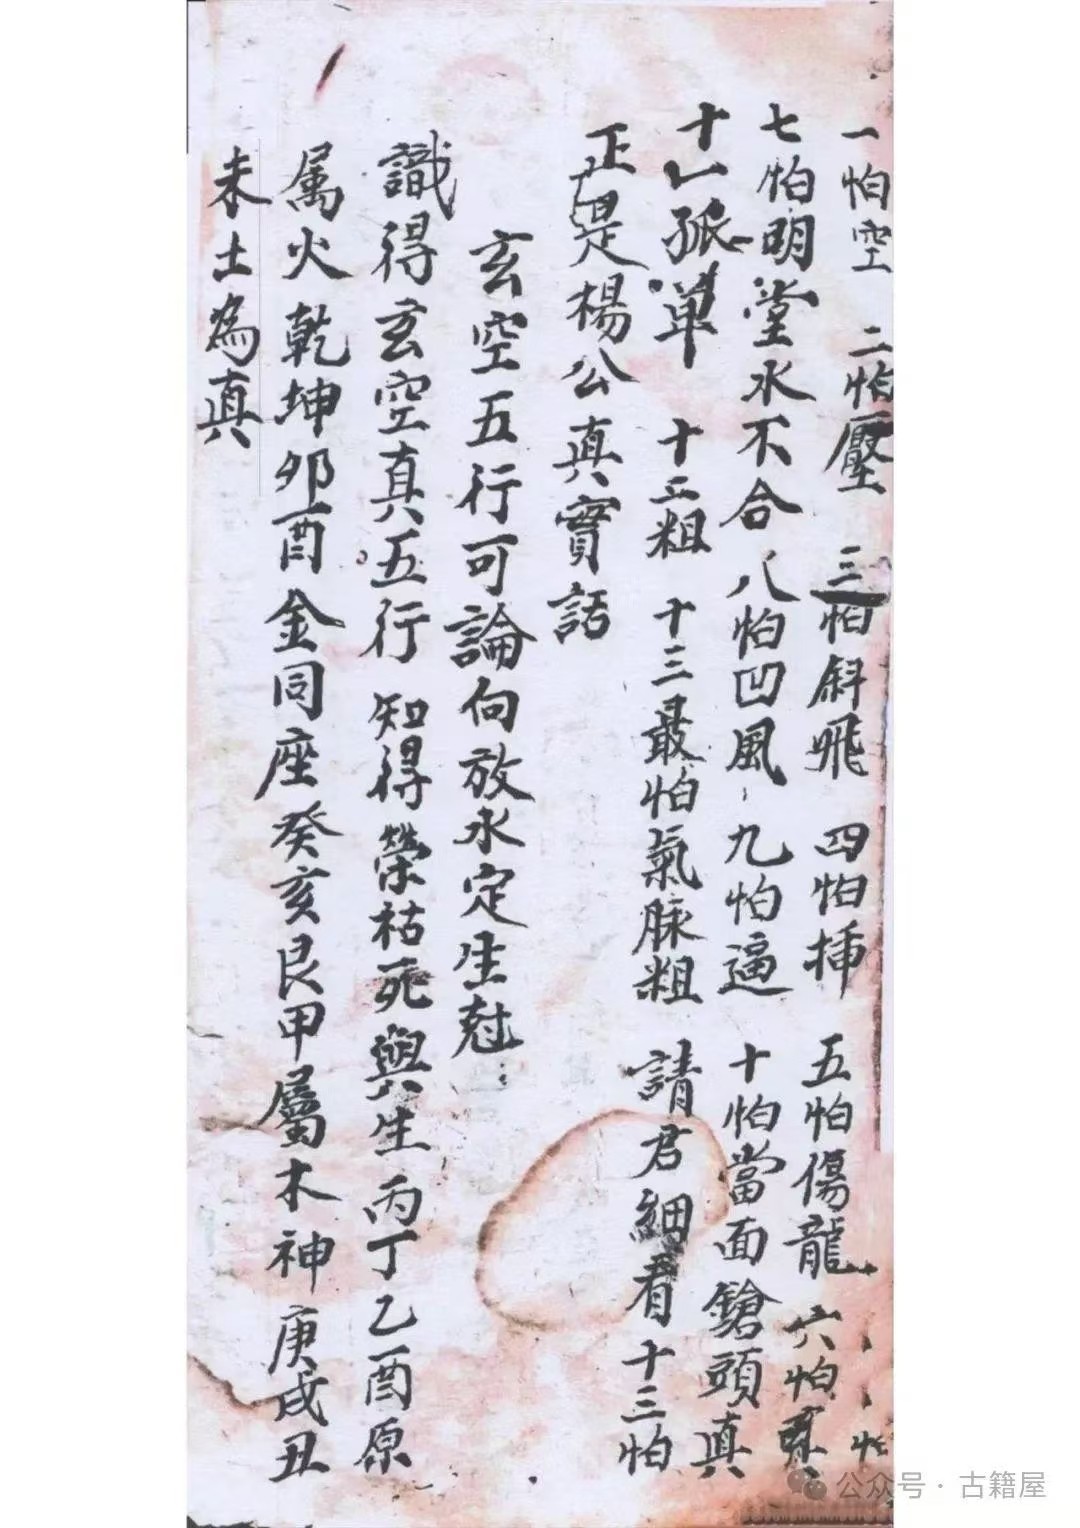 一怕空 二怕壓 三怕斜飛 四怕挿 五怕傷龍 六怕
七怕明堂水不合 八怕凹風 九怕逼 十怕當面鎗頭真
十一孤單 十二粗 十三最怕氣脉粗 請君細看十三怕
正是楊公真實話
玄空五行可論向放水定生尅
識得玄空真五行 知得榮枯死與生 丙丁乙酉原
属火 乾坤卯酉金同座 癸亥艮甲屬木神 庚戌丑
未土為真
公众号·古籍屋